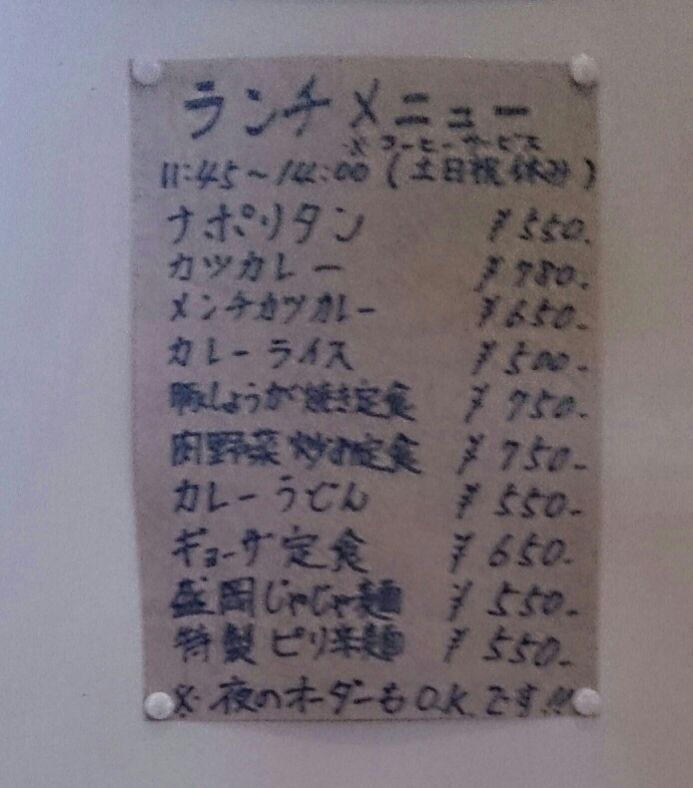 ランチメニュー
※コーヒーサービス
11:45～14:00(土日祝休み)
ナポリタン ¥550.
カツカレー ¥780.
メンチカツカレー ¥650.
カレーライス ¥500-
豚しょうが焼き定食 ¥750.
肉野菜炒め定食 ¥750-
カレーうどん ¥550-
ギョーザ定食 ¥650-
盛岡じゃじゃ麺 ¥550-
特製ピリ辛麺 ¥550-
※夜のオーダーもO.K.です!!